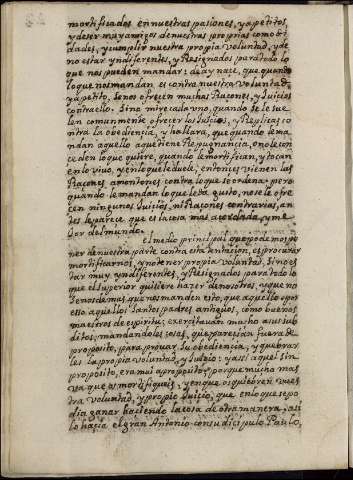 mortificados en nuestras pasiones, y apetitos,
y de ser muy amigos de nuestras proprias comodi-
dades, y cumplir nuestra propia voluntad, y de
no estar yndiferentes, y Resignados para todo lo
que nos pueden mandar: de ay nace, que quando
lo que nos mandan es contra nuestra voluntad,
y apetito, se nos ofrecen muchas Raçones, y Juicios
contra ello. Sino mire cada uno, quando se le sue
len comunmente ofrecer los Juicios, y Replicas co
ntra la obediencia, y hallara, que quando le ma
ndan aquello a que tiene Repugnancia, o no le con
ceden lo que quiere, quando le mortifican, y tocan
en lo vivo, y en lo que le duele, entonces vienen las
Raçones a montones contra lo que se ordena; pero
quando le mandan lo que le da gusto, no se le ofre
cen ningunos Juicios, ni Raçones contrarias, an
tes le parece que es la cosa mas acordada, y me
Jor del mundo.
el medio principal que podemos po
ner de nuestra parte contra esta tentacion, es procurar
mortificarnos, y no tener propia voluntad, sino es
tar muy yndiferentes, y Resignados para todo lo
que el superior quisiere hazer de nosotros, y que no
se nos de mas que nos manden esto, que aquello. y por
esso aquellos santos padres antiguos, como buenos
maestros de espiritu, exercitavan mucho a sus sub
ditos, mandandoles cosas, que parecian fuera de
proposito, para provar su obediencia, y quebrar
les la propia voluntad, y Juicio: y assi aquel sin
proposito, era mui a proposito; porque mucho mas
va que os mortifiqueis, y en que os quiebren vues
tra voluntad, y propio Juicio, que en lo que se po
dia ganar haciendo la cosa de otra manera, asi
lo hacia el gran Antonio con su dicipulo Paulo,